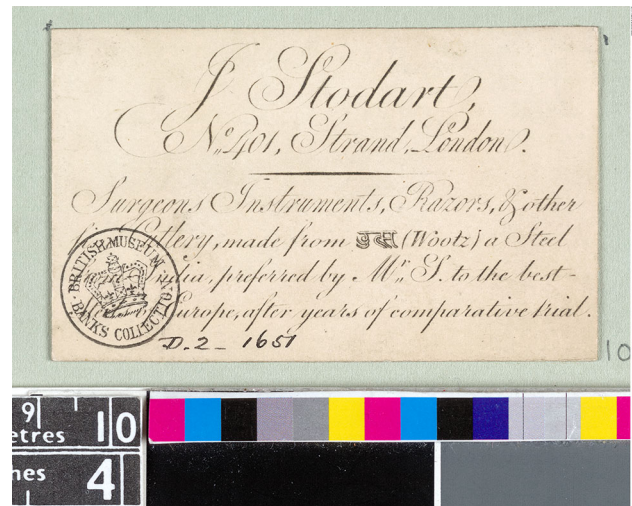 J Stodart,
No. 401, Strand, London.
Surgeons Instruments, Razors, & other
Cutlery, made from (Wootz) a Steel
India, preferred by Mr. S. to the best
Europe, after years of comparative trial.
BRITISH MUSEUM
BANKS COLLECTION
D.2- 1651
10
9 10
etres
nes 4